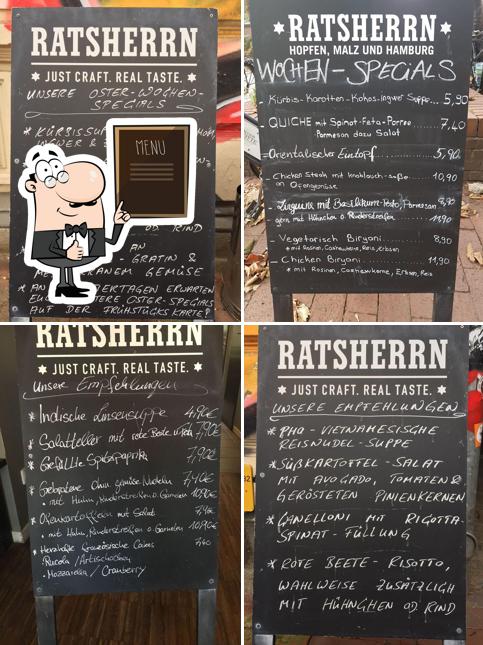 RATSHERRN
JUST CRAFT. REAL TASTE.
UNSERE OSTER-WOCHEN-
SPECIALS
* KÜRBISSUP
INGWER &
MENU
OD RIND
AN
- GRATIN &
MEDITERRANEM GEMÜSE
* AN FEIERTAGEN ERWARTEN
EUCH WEITERE OSTER-SPECIALS
AUF DER FRÜHSTÜCKSKARTE!
RATSHERRN
HOPFEN, MALZ UND HAMBURG
WOCHEN-SPECiALS
- Kürbis-Karotten-Kokos-Ingwer Suppe... 5,90
- QUICHE mit Spinat-Feta-Porree
Parmesan dazu Salat ... 7,40
- Orientalischer Eintopf ........ 5,90
- Chicken Steak mit Knoblauch-Soße ... 10,90
an Ofengemüse
- Linguine mit Basilikum-Pesto, Parmesan 8,90
gern mit Hühnchen o. Rinderstreifen 11,90
- Vegetarisch Biryani ........ 8,90
* mit Rosinen, Cashewkerne, Reis, Erbsen
- Chicken Biryani ........ 11,90
* mit Rosinen, Cashewkerne, Erbsen, Reis
RATSHERRN
JUST CRAFT. REAL TASTE.
Unsere Empfehlungen
* Indische Linsensuppe 4,90€
* Salatteller mit rote Beete 7,90€
* Gefüllte Spitzpaprika 7,90€
mit Huhn, Rinderstreifen o. Garnelen 10,90€
* Ofenkartoffeln mit Salat
mit Huhn, Rinderstreifen o. Garnelen 10,90€
* Herzhafte französische Cakes 7,40
Rucola / Artischocken
Mozzarella / Cranberry
RATSHERRN
JUST CRAFT. REAL TASTE.
UNSERE EMPFEHLUNGEN
* PHO - VIETNAMESISCHE
REISNUDEL-SUPPE
* SÜßKARTOFFEL-SALAT
MIT AVOGADO, TOMATEN &
GERÖSTETEN PINIENKERNEN
* CANELLONI MIT RIGOTTA-
SPINAT-FÜLLUNG
* ROTE BEETE-RISOTTO,
WAHLWEISE ZUSÄTZLICH
MIT HÜHNCHEN OD RIND